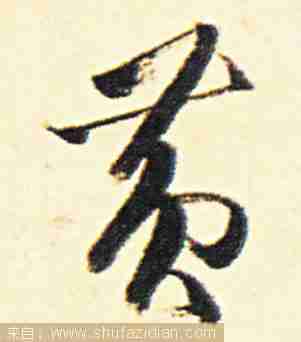 黄
来自：www.shufazidian.com